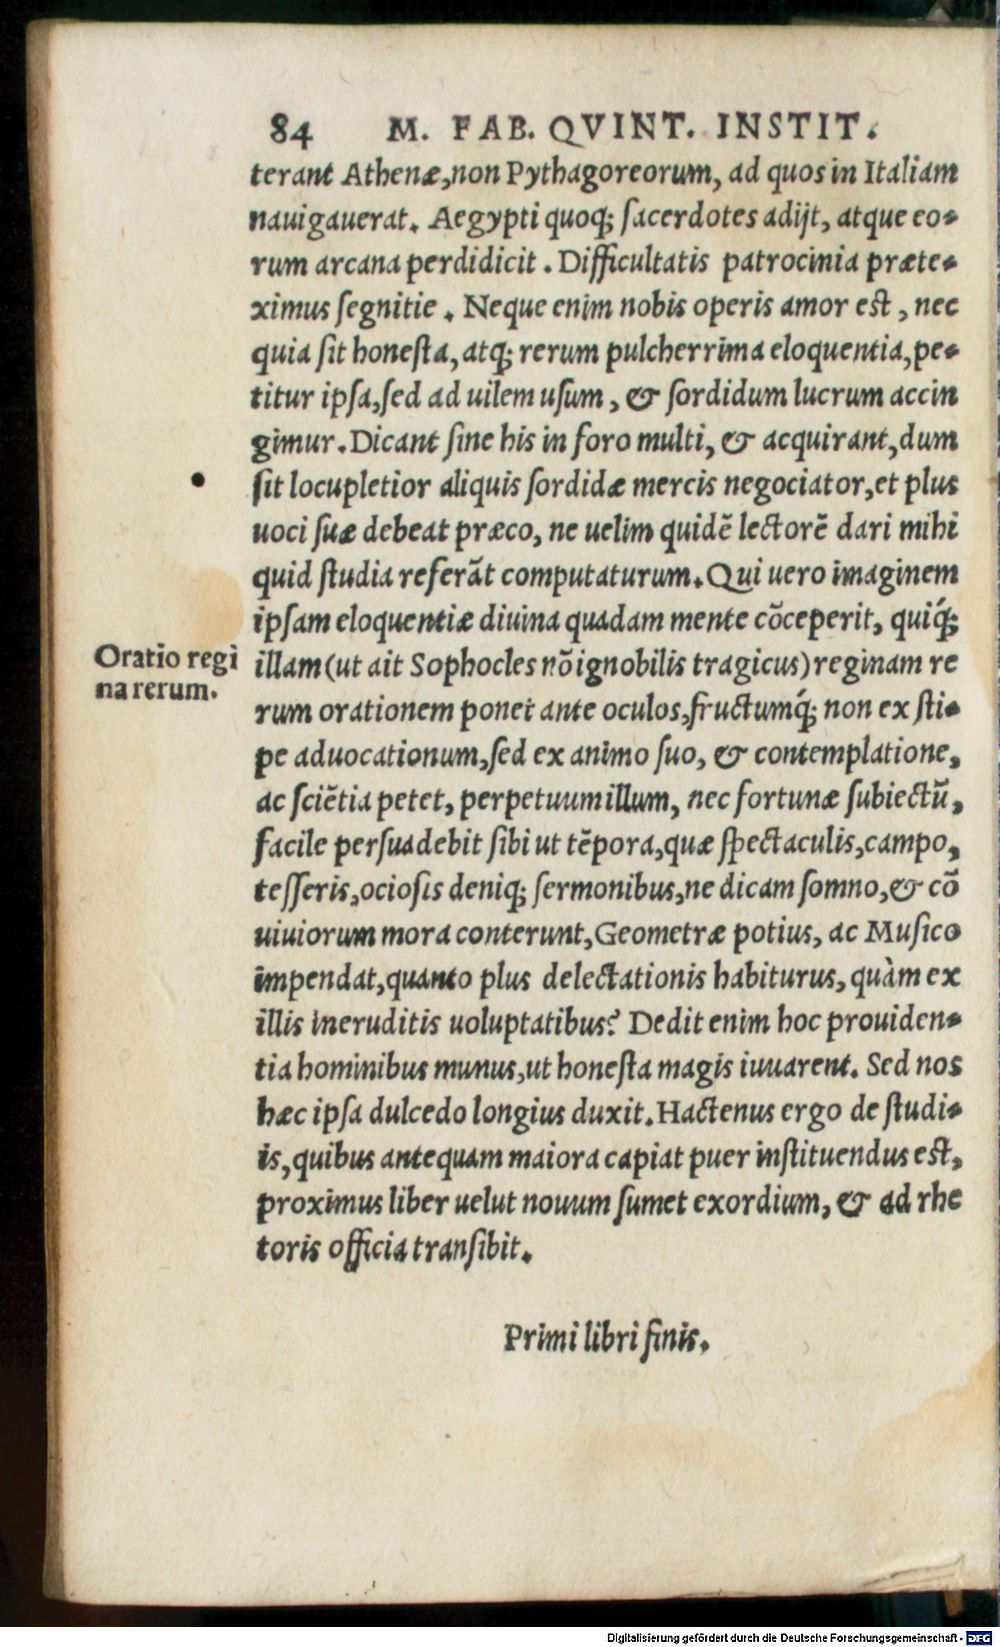 84 M. FAB. QVINT. INSTIT.
terant Athenæ,non Pythagoreorum, ad quos in Italiam
nauigauerat. Aegypti quoq; ſacerdotes adijt, atque eo-
rum arcana perdidicit. Difficultatis patrocinia præte-
ximus ſegnitie. Neque enim nobis operis amor est, nec
quia ſit honeſta, atq; rerum pulcherrima eloquentia, pe-
titur ipſa,ſed ad uilem uſum, & ſordidum lucrum accin
gimur. Dicant ſine his in foro multi, & acquirant, dum
ſit locupletior aliquis ſordidæ mercis negociator, et plus
uoci ſuæ debeat præco, ne uelim quidē lectorē dari mihi
quid ſtudia referāt computaturum. Qui uero imaginem
ipſam eloquentiæ diuina quadam mente cōceperit, quiq́;
Oratio regi
na rerum.
illam (ut ait Sophocles nō ignobilis tragicus) reginam re
rum orationem ponet ante oculos,fructumq́; non ex ſti-
pe aduocationum,ſed ex animo ſuo, & contemplatione,
ac ſciētia petet, perpetuum illum, nec fortunæ ſubiectū,
facile perſuadebit ſibi ut tēpora,quæ ſpectaculis,campo,
teſſeris,ocioſis deniq; ſermonibus,ne dicam ſomno,& cō
uiuiorum mora conterunt,Geometræ potius, ac Muſico
impendat,quanto plus delectationis habiturus, quàm ex
illis ineruditis uoluptatibus? Dedit enim hoc prouiden-
tia hominibus munus,ut honeſta magis iuuarent. Sed nos
hæc ipſa dulcedo longius duxit. Hactenus ergo de ſtudi-
is,quibus antequam maiora capiat puer inſtituendus est,
proximus liber uelut nouum ſumet exordium, & ad rhe
toris officia tranſibit.
Primi libri finis.
Digitalisierung gefördert durch die Deutsche Forschungsgemeinschaft - DFG